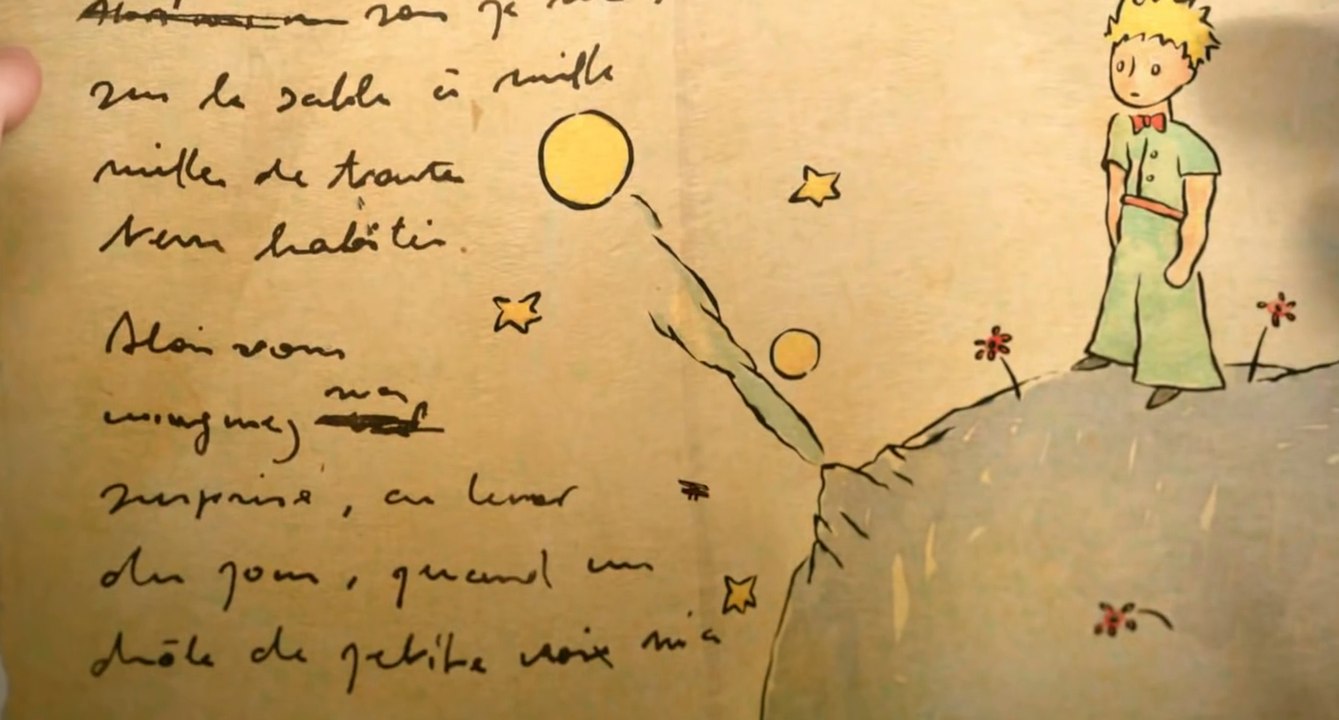 sur le sable à mille
milles de toute
terre habitée.
Alors vous
imaginez ma
surprise, au lever
du jour, quand une
drôle de petite voix m'a